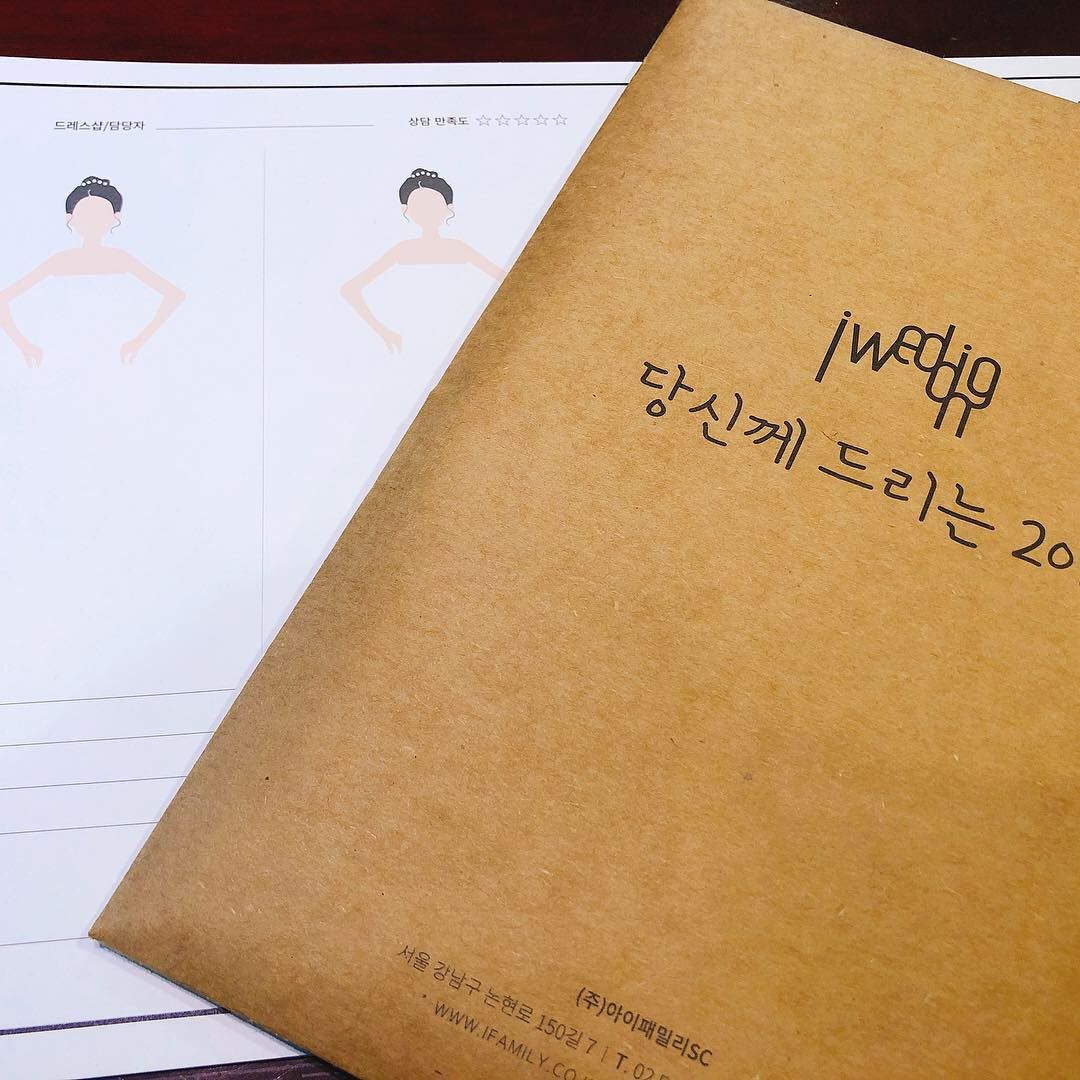 드레스샵/담당자
상담 만족도 ☆☆☆☆☆
iwedding
당신께 드리는 20
(주)아이패밀리SC
서울 강남구 논현로 150길 7 | T. 02
WWW.IFAMILY.CO